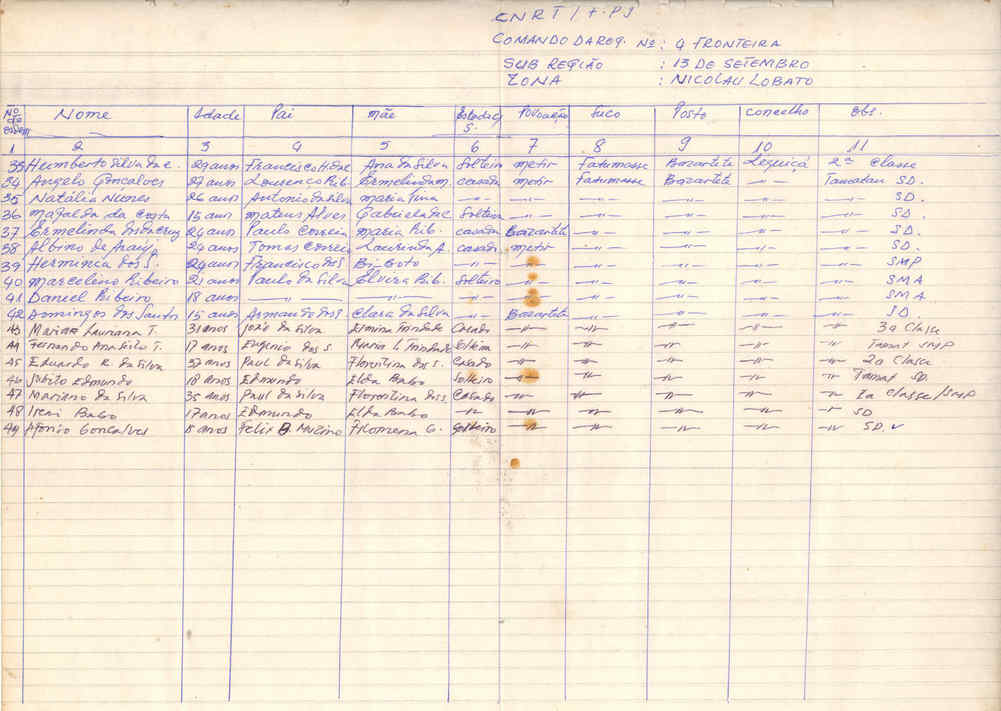 CNRT / F.PJ
COMANDO DA REG. Nº : 4 FRONTEIRA
SUB REGIÃO : 13 DE SETEMBRO
ZONA : NICOLAU LOBATO
No. de ordem Nome Idade Pai Mãe Estado S. Povoação Suco Posto Concelho Obs.
1 2 3 4 5 6 7 8 9 10 11
33 Humberto Silva 29 anos Francisco Ana da Silva Solteiro metir Fatumasse Bazartete Lequiçá 2ª Classe
34 Angelo Goncalves 27 anos Lourenço Rib. Ermelinda m. casada metir Fatumasse Bazartete —"— SD.
35 Natália Nunes 26 anos Antonio da Silva maria —"— —"— —"— —"— —"— SD.
36 magalda da Costa 15 anos mateus Alves Gabriela Solteira —"— —"— —"— —"— SD.
37 Ermelinda 24 anos Paulo Correia maria Rib. casada Bazartete —"— —"— —"— SD.
38 Albino de Arauj. 24 anos Tomas Correia Laurinda A. casado metir —"— —"— —"— SD.
39 Herminia dos S. 24 anos Francisco dos S Bi-Boto —"— —"— —"— —"— —"— SMP
40 marcelino Ribeiro 21 anos Paulo da Silva Elvira Rib. Solteiro —"— —"— —"— —"— SMA
41 Daniel Ribeiro 18 anos —"— —"— —"— —"— —"— —"— —"— SMA
42 Domingos dos Santos 15 anos Armando dos S Clara da Silva —"— Bazartete —"— —"— —"— SD.
43 Maria Lauriana T. 31 anos João da Silva Trindade Casado —"— —"— —"— —"— 3a Classe
44 Fernando T. 17 anos Eugenio dos S. Maria L. Trindade Solteiro —"— —"— —"— —"— SMP
45 Eduardo R. da Silva 37 anos Paul da Silva Florentina dos S. Casado —"— —"— —"— —"— 2a Classe
46 Edmundo 18 anos Edmundo Elda Babo Solteiro —"— —"— —"— —"— SD.
47 Mariano da Silva 35 anos Paul da Silva Florentina dos S Casado —"— —"— —"— —"— 1a Classe/SMP
48 Babo 17 anos Edmundo Elda Babo —"— —"— —"— —"— —"— SD
49 Afonso Goncalves anos Felix Filomena G. Solteiro —"— —"— —"— —"— SD.